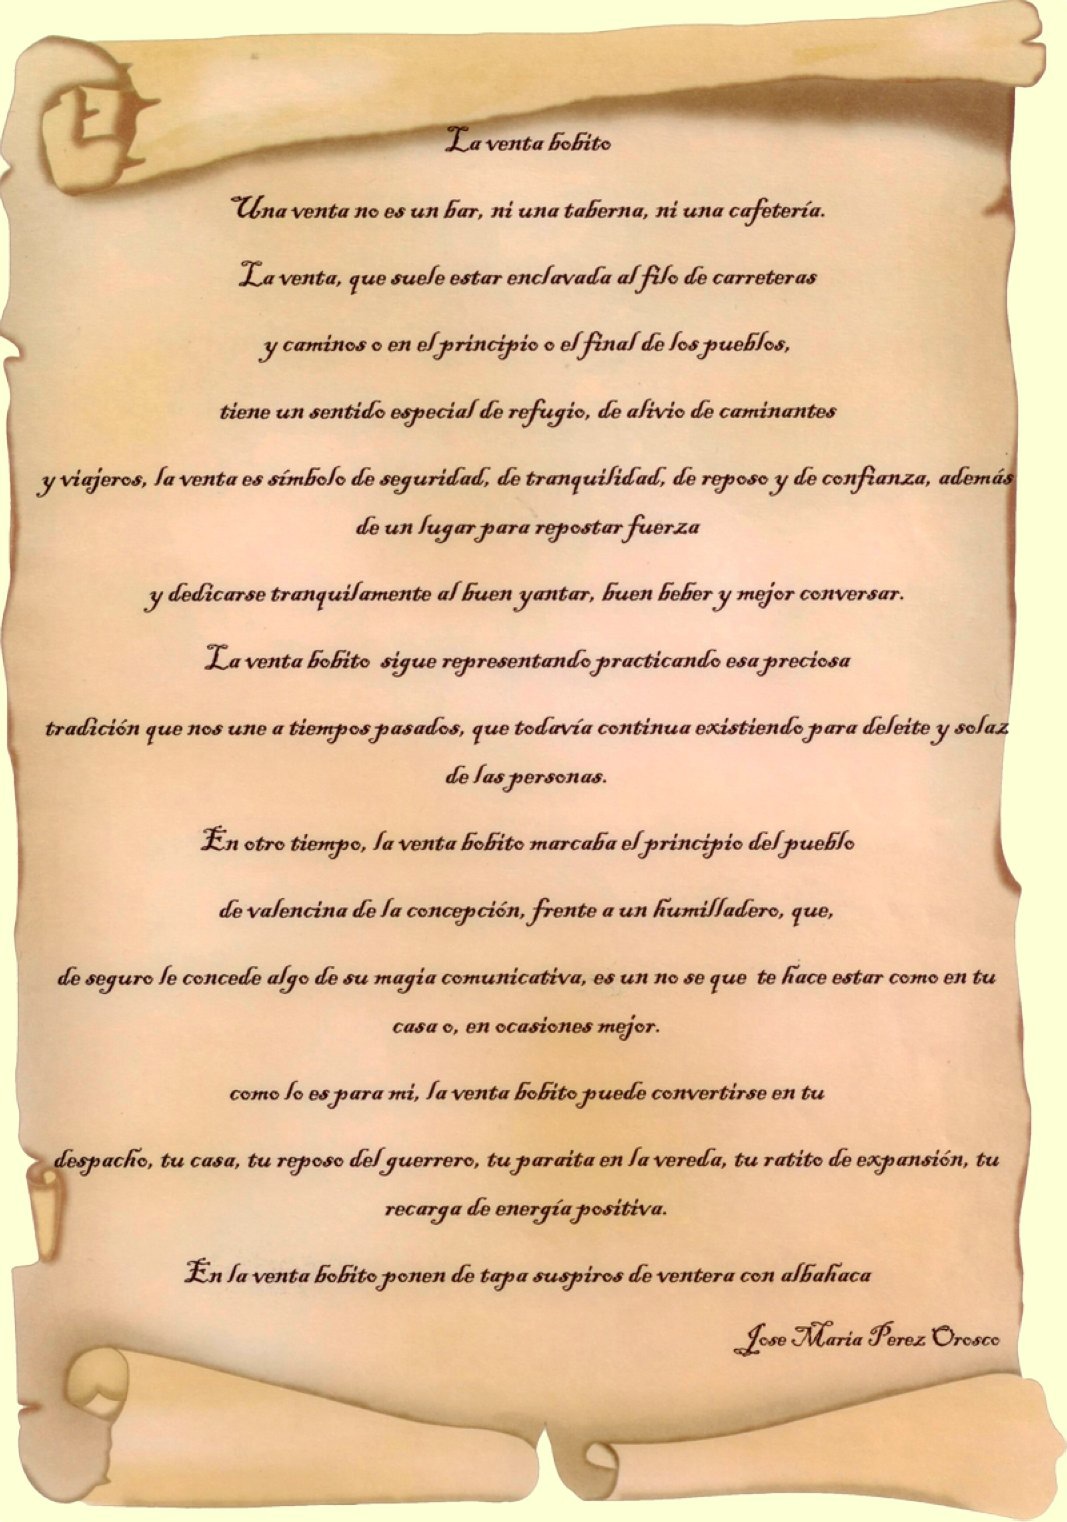 La venta bobito
Una venta no es un bar, ni una taberna, ni una cafetería.
La venta, que suele estar enclavada al filo de carreteras
y caminos o en el principio o el final de los pueblos,
tiene un sentido especial de refugio, de alivio de caminantes
y viajeros, la venta es símbolo de seguridad, de tranquilidad, de reposo y de confianza, además
de un lugar para repostar fuerza
y dedicarse tranquilamente al buen yantar, buen beber y mejor conversar.
La venta bobito sigue representando practicando esa preciosa
tradición que nos une a tiempos pasados, que todavía continua existiendo para deleite y solaz
de las personas.
En otro tiempo, la venta bobito marcaba el principio del pueblo
de valencina de la concepción, frente a un humilladero, que,
de seguro le concede algo de su magia comunicativa, es un no se que te hace estar como en tu
casa o, en ocasiones mejor.
como lo es para mi, la venta bobito puede convertirse en tu
despacho, tu casa, tu reposo del guerrero, tu paraita en la vereda, tu ratito de expansión, tu
recarga de energía positiva.
En la venta bobito ponen de tapa suspiros de ventera con albahaca
Jose Maria Perez Orosco